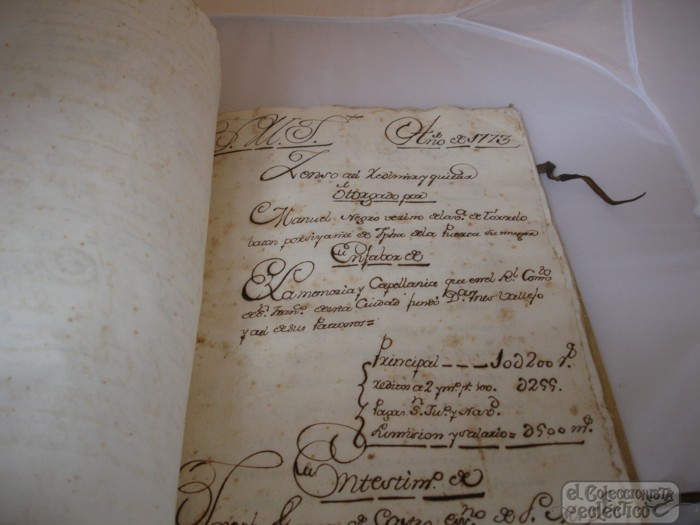 J. M. J. Año de 1773
Zenso al Redimir y quitar
Otorgado por
Manuel Negro vezino de la v.ª de
por si y a de de la Puerca su muger
En fabor de
La memoria y Capellania que en el R.l Conv.to
de S.n Fran.co de esta Ciudad fundó D.ª Ines Vallejo
y al de sus Patronos=
Principal - - - 1 200 r.s
Reditos a 2 y m.º p.r 100. 255.
Pagas S.n Ju.º y Nav.d
Sumision y salario= 500 m.s
En testim.º de
de S.
el Coleccionista
ecléctico